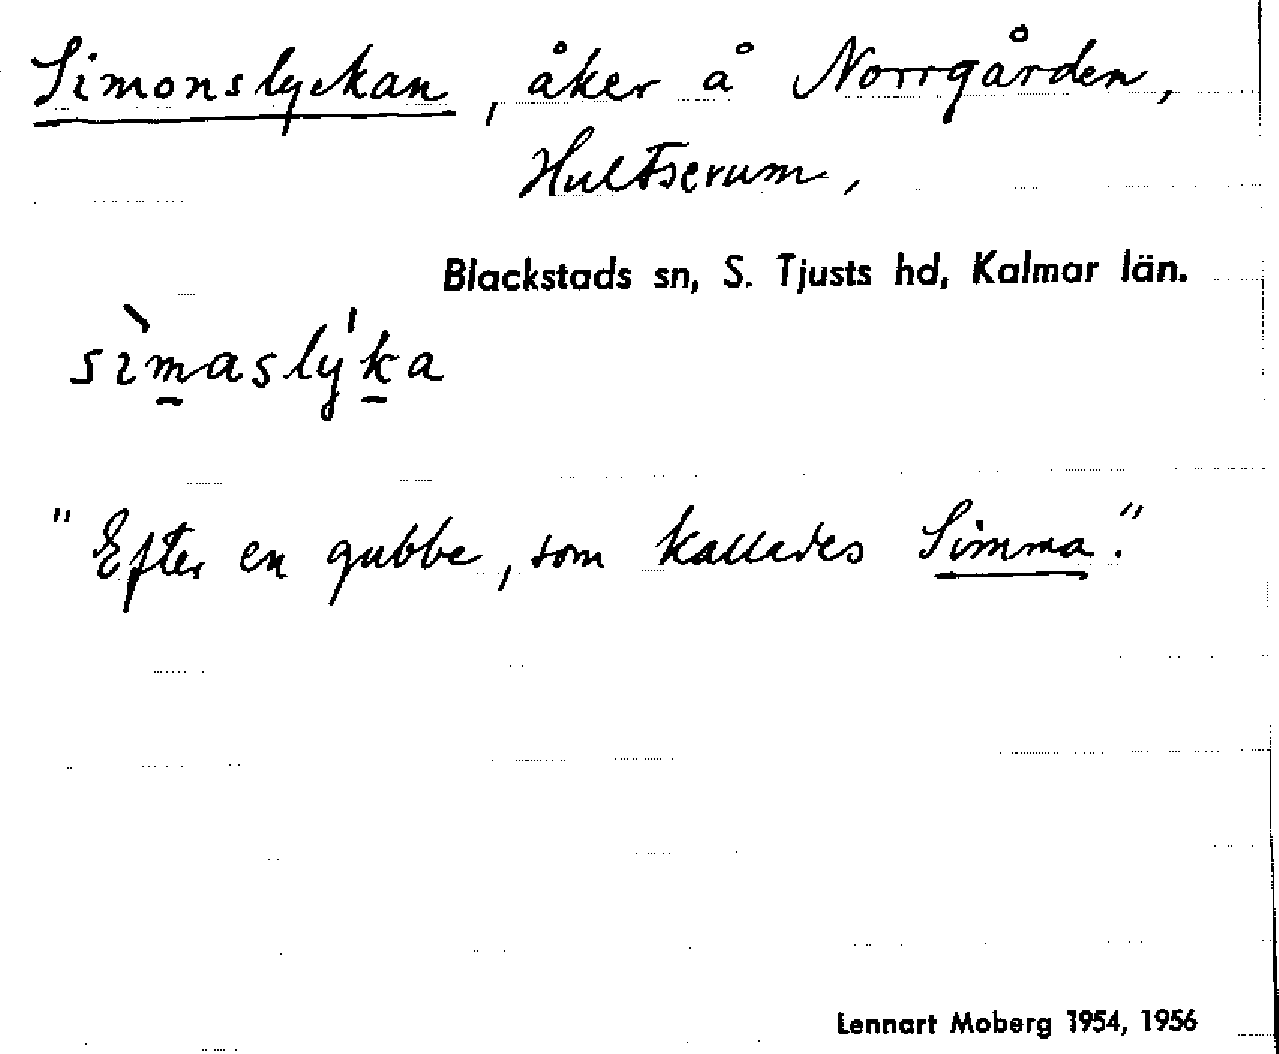 Simonslyckan, åker å Norrgården,
Hultserum,
Blackstads sn, S. Tjusts hd, Kalmar län.
sìmaslýka
"Efter en gubbe, som kallades Simma."
Lennart Moberg 1954, 1956